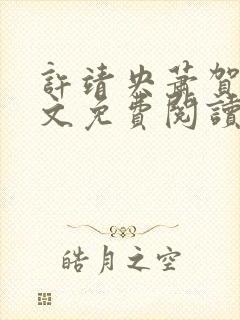 許靖央蕭賀
文免費閱讀
皓月之空